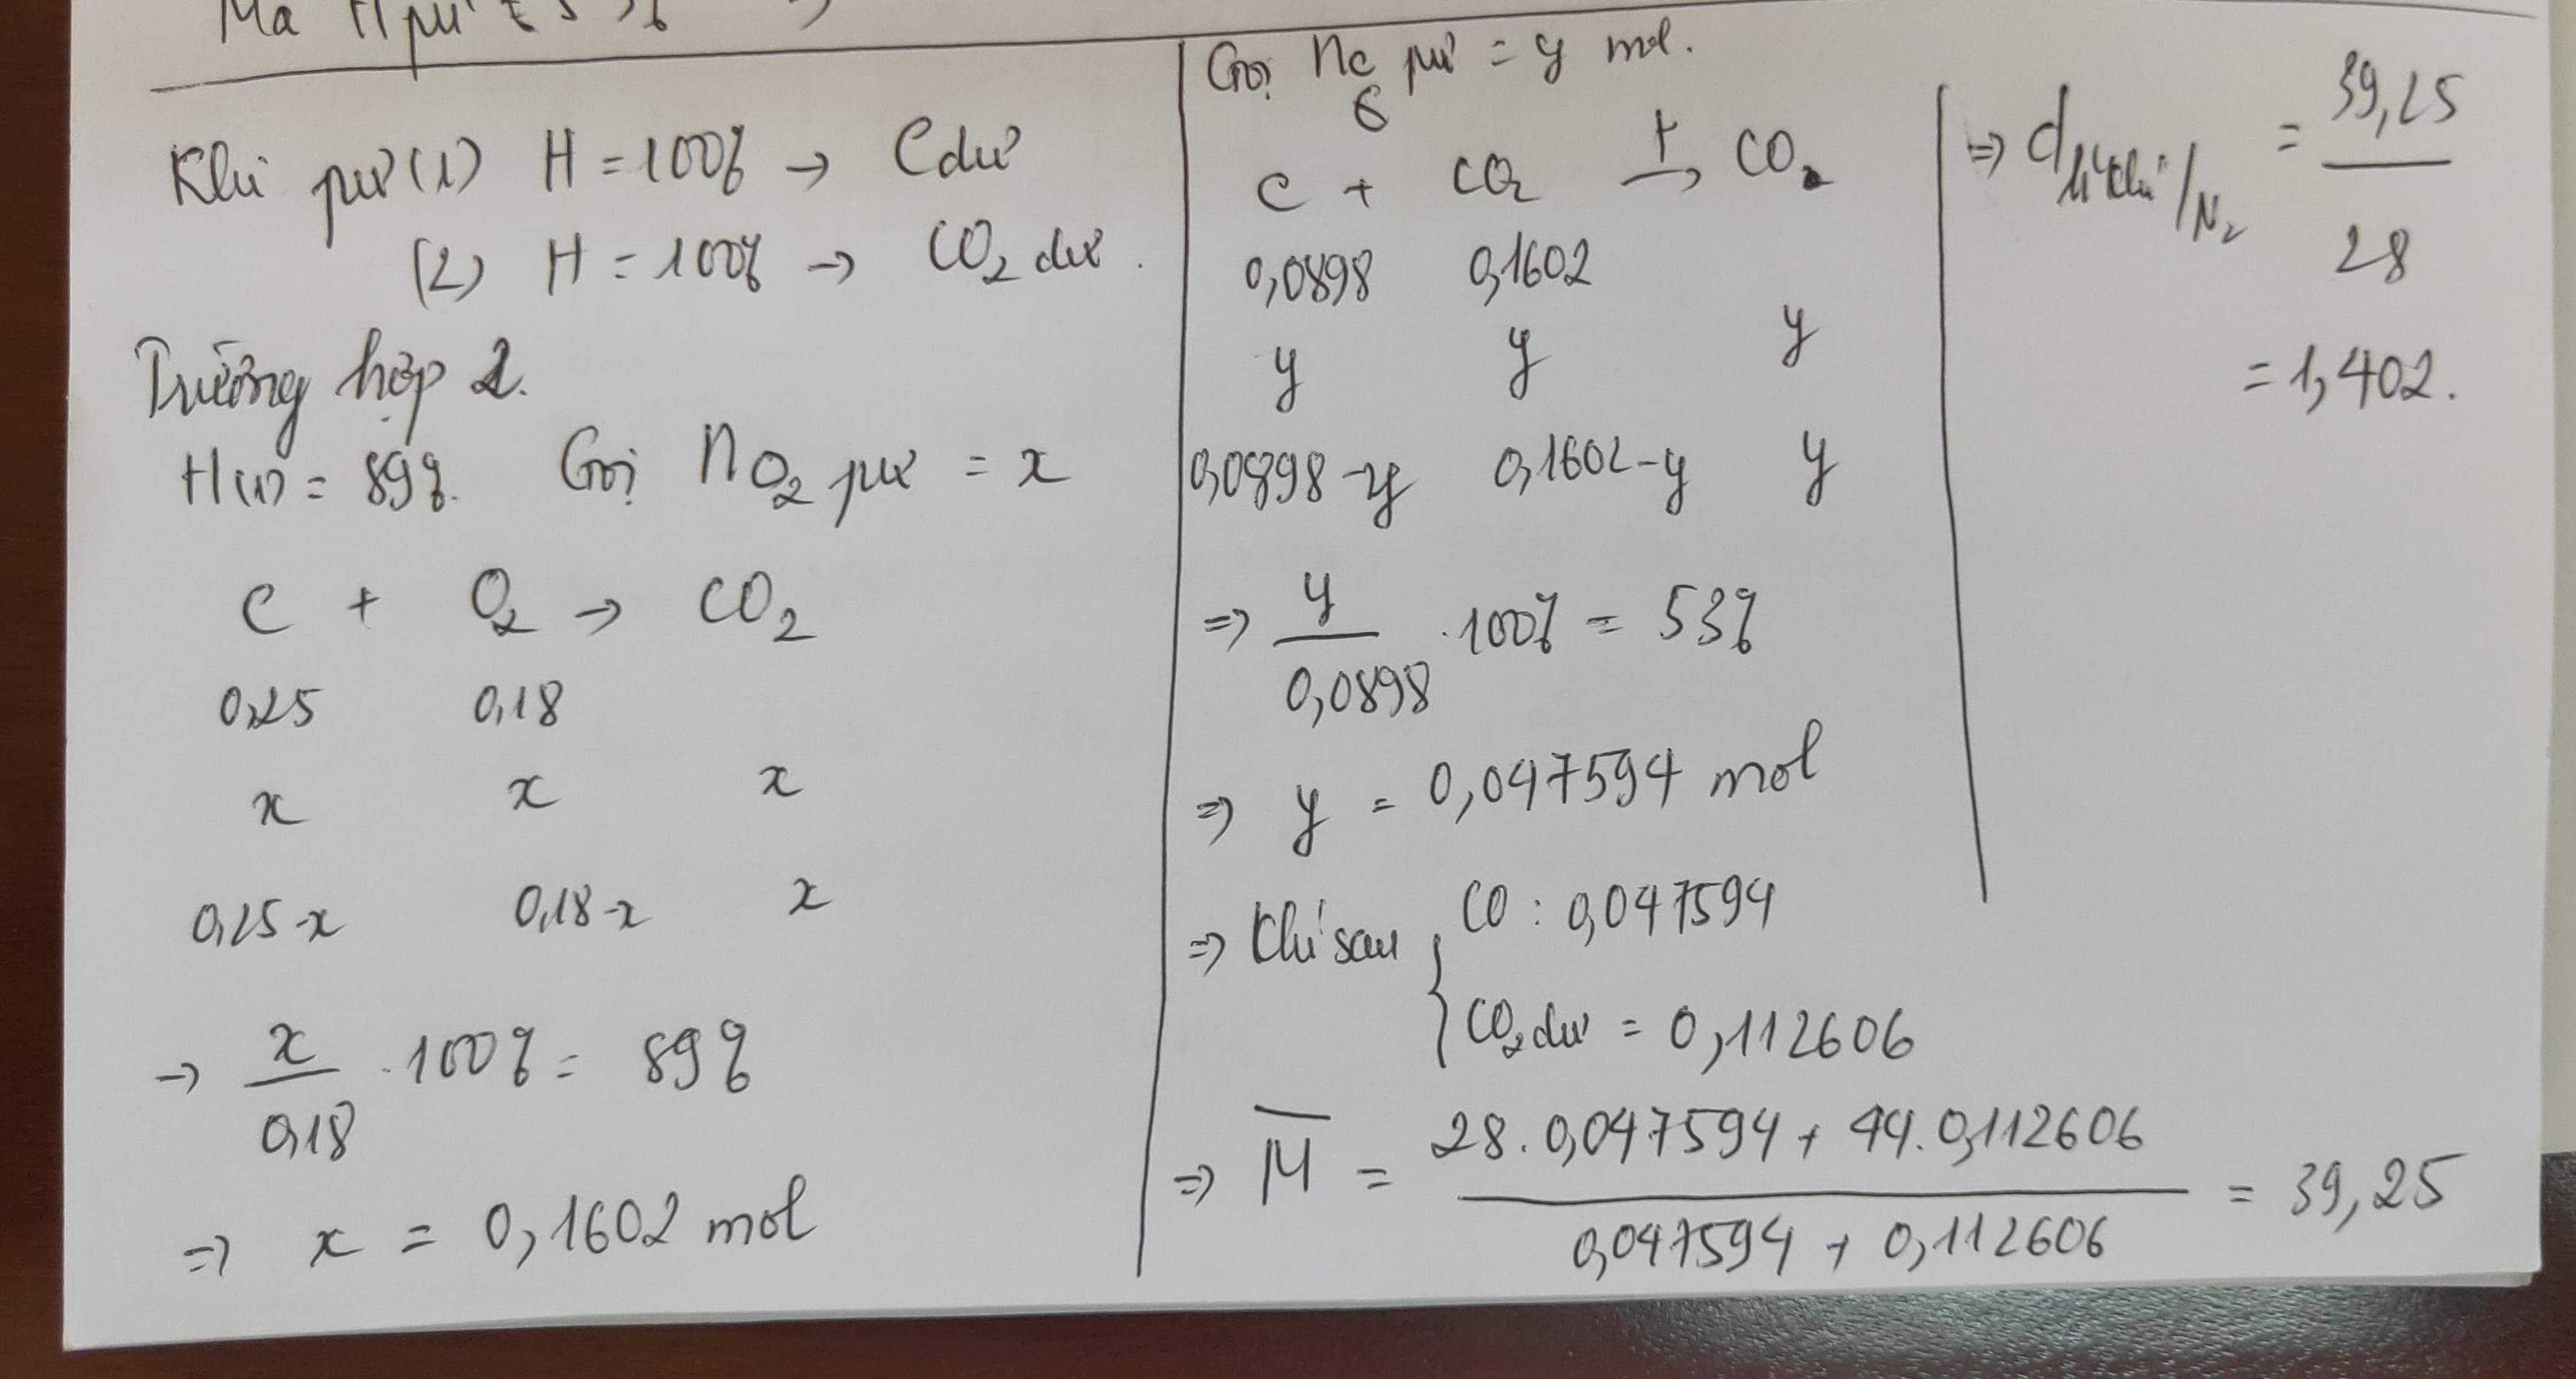 Mà H pư
Khi pư (1) H = 100% → C dư
(2) H = 100% → CO2 dư.
Trường hợp 2.
H(1) = 89%. Gọi nO2 pư = x
C + O2 → CO2
0,25 0,18
x x x
0,25-x 0,18-x x
→ x/0,18 . 100% = 89%
=> x = 0,1602 mol
Gọi nC pư = y mol.
C + CO2 →
0,0898 0,1602
y y y
0,0898-y 0,1602-y y
=> y/0,0898 . 100% = 53%
=> y = 0,047594 mol
=> Khí sau { CO : 0,047594
CO2 dư = 0,112606
=> M = (28.0,047594 + 44.0,112606)/(0,047594 + 0,112606) = 39,25
=> d /N2 = 39,25/28
= 1,402.